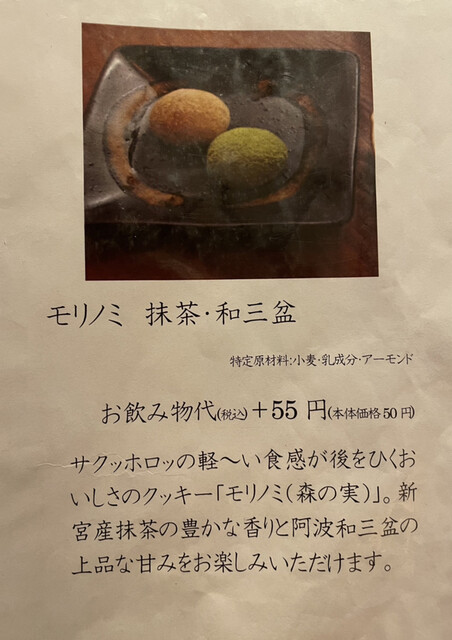 モリノミ 抹茶・和三盆
特定原材料:小麦・乳成分・アーモンド
お飲み物代(税込)＋55 円(本体価格50円)
サクッホロッの軽〜い食感が後をひくお
いしさのクッキー「モリノミ(森の実)」。新
宮産抹茶の豊かな香りと阿波和三盆の
上品な甘みをお楽しみいただけます。